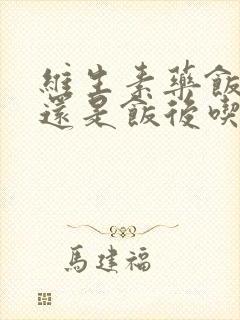 維生素藥飯
還是飯後喫
馬建福